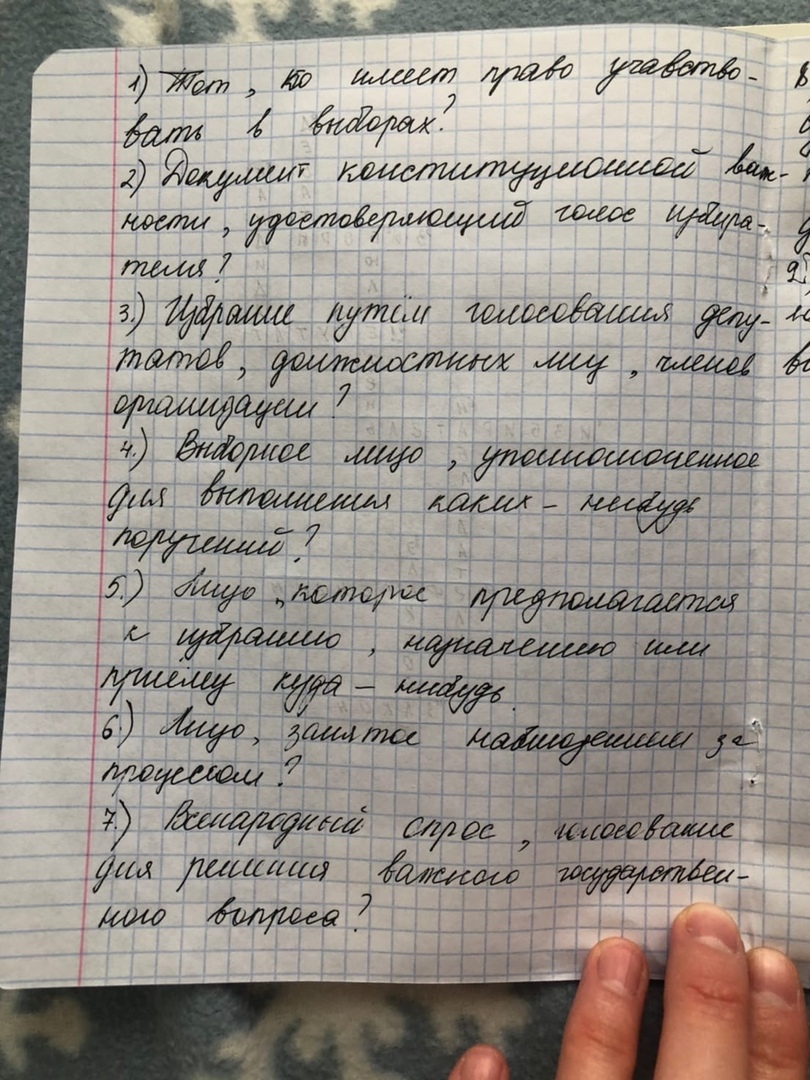 1) Тот, кто имеет право учавство-
вать в выборах?
2) Документ конституционной важ-
ности, удостоверяющий голос избира-
теля?
3.) Избрание путём голосования депу-
татов, должностных лиц, членов
организации?
4.) Выборное лицо, уполномоченное
для выполнения каких-нибудь
поручений?
5.) Лицо, которое предполагается
к избранию, назначению или
приёму куда-нибудь.
6.) Лицо, занятое наблюдением за
процессом?
7.) Всенародный спрос, голосование
для решения важного государствен-
ного вопроса?